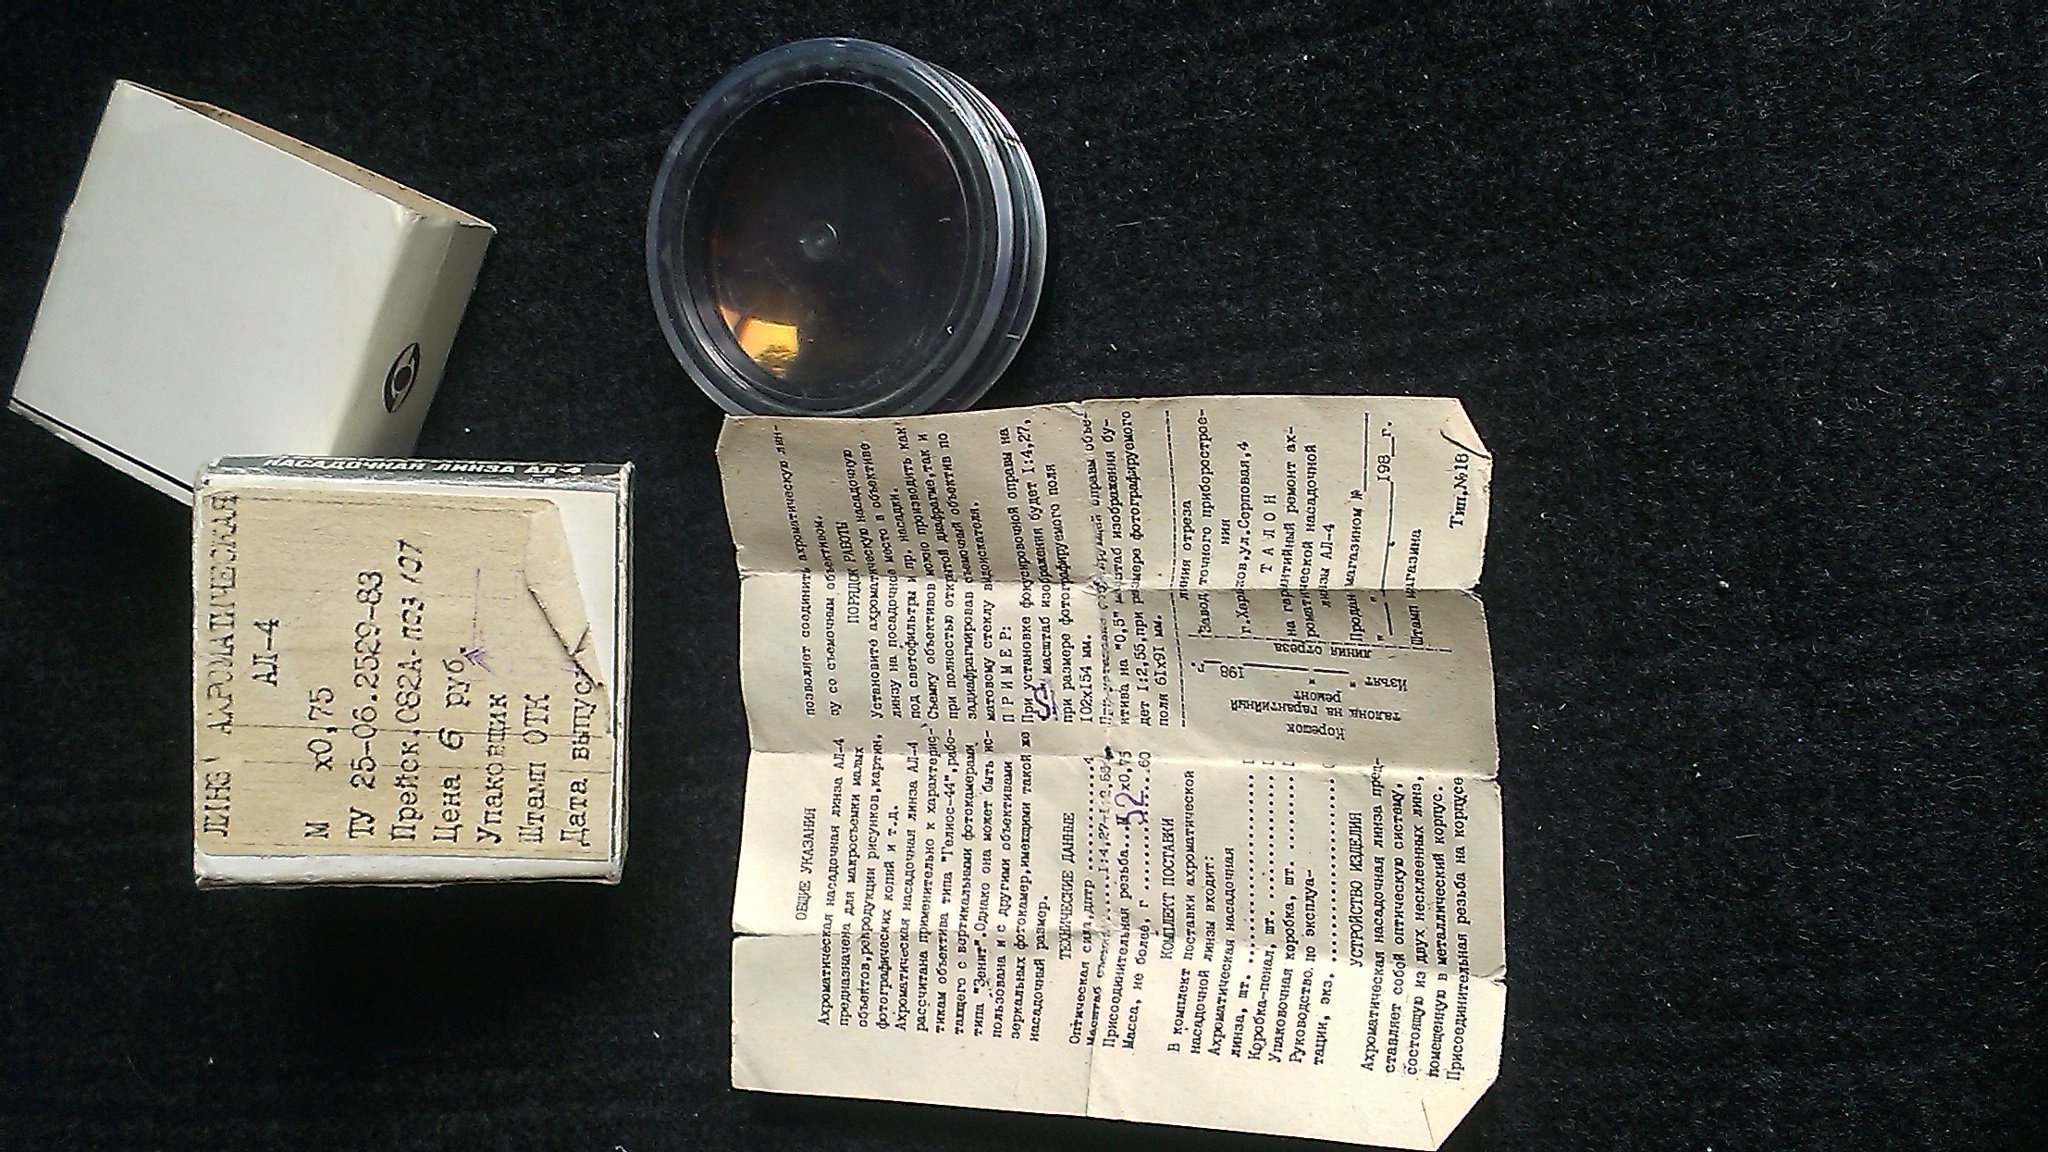 НАСАДОЧНАЯ ЛИНЗА АЛ-4
АХРОМАТИЧЕСКАЯ
АЛ-4
М х0,75
ТУ 25-06.2529-83
Прейск.082А-
Цена 6 руб.
Упаковщик
Штамп ОТК
Дата выпуск
ОБЩИЕ УКАЗАНИЯ
Ахроматическая насадочная линза АЛ-4
предназначена для макросъемки малых
объектов,репродукции рисунков,картин,
фотографических копий и т.д.
Ахроматическая насадочная линза АЛ-4
рассчитана применительно к характерис-
тикам объектива типа "Гелиос-44",рабо-
тающего с зеркальными фотокамерами
типа "Зенит".Однако она может быть ис-
пользована и с другими объективами
зеркальных фотокамер,имеющими такой же
насадочный размер.
ТЕХНИЧЕСКИЕ ДАННЫЕ
Оптическая сила,дптр ..........4
Масштаб 1:4,27-1:2,55
Присоединительная резьба...М52х0,75
Масса, не более, г ..........60
КОМПЛЕКТ ПОСТАВКИ
В комплект поставки ахроматической
насадочной линзы входит:
Ахроматическая насадочная
линза, шт. .......... 1
Коробка-пенал, шт. .......... 1
Упаковочная коробка, шт. .......... 1
Руководство по эксплуа-
тации, экз. ..........
УСТРОЙСТВО ИЗДЕЛИЯ
Ахроматическая насадочная линза пред-
ставляет собой оптическую систему,
состоящую из двух несклеенных линз,
помещенную в металлический корпус.
Присоединительная резьба на корпусе
позволяет соединить ахроматическую лин-
зу со съемочным объективом.
ПОРЯДОК РАБОТЫ
Установите ахроматическую насадочную
линзу на посадочное место в объективе
под светофильтры и пр. насадки.
Съемку объективов можно производить как
при полностью открытой диафрагме,так и
задиафрагмировав съемочный объектив по
матовому стеклу видоискателя.
ПРИМЕР:
При установке фокусировочной оправы на
масштаб изображения будет 1:4,27,
при размере фотографируемого поля
102х154 мм.
оправы объе-
ктива на "0,5" масштаб изображения бу-
дет 1:2,55,при размере фотографируемого
поля 61х91 мм.
линия отреза
Завод точного приборострое-
ния
г.Харьков,ул.Серповая,4
ТАЛОН
на гарантийный ремонт ах-
роматической насадочной
линзы АЛ-4
Продан магазином №
" " 198 г.
Штамп магазина
Тип.№18
линия отреза
Корешок
талона на гарантийный
ремонт
Изъят " " 198 г.